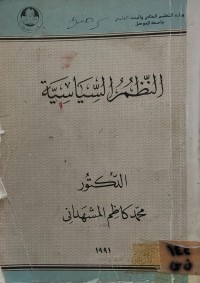 وزارة التعليم العالي والبحث العلمي
جامعة الموصل
النظم السياسية
الدكتور
محمد كاظم المشهداني
١٩٩١